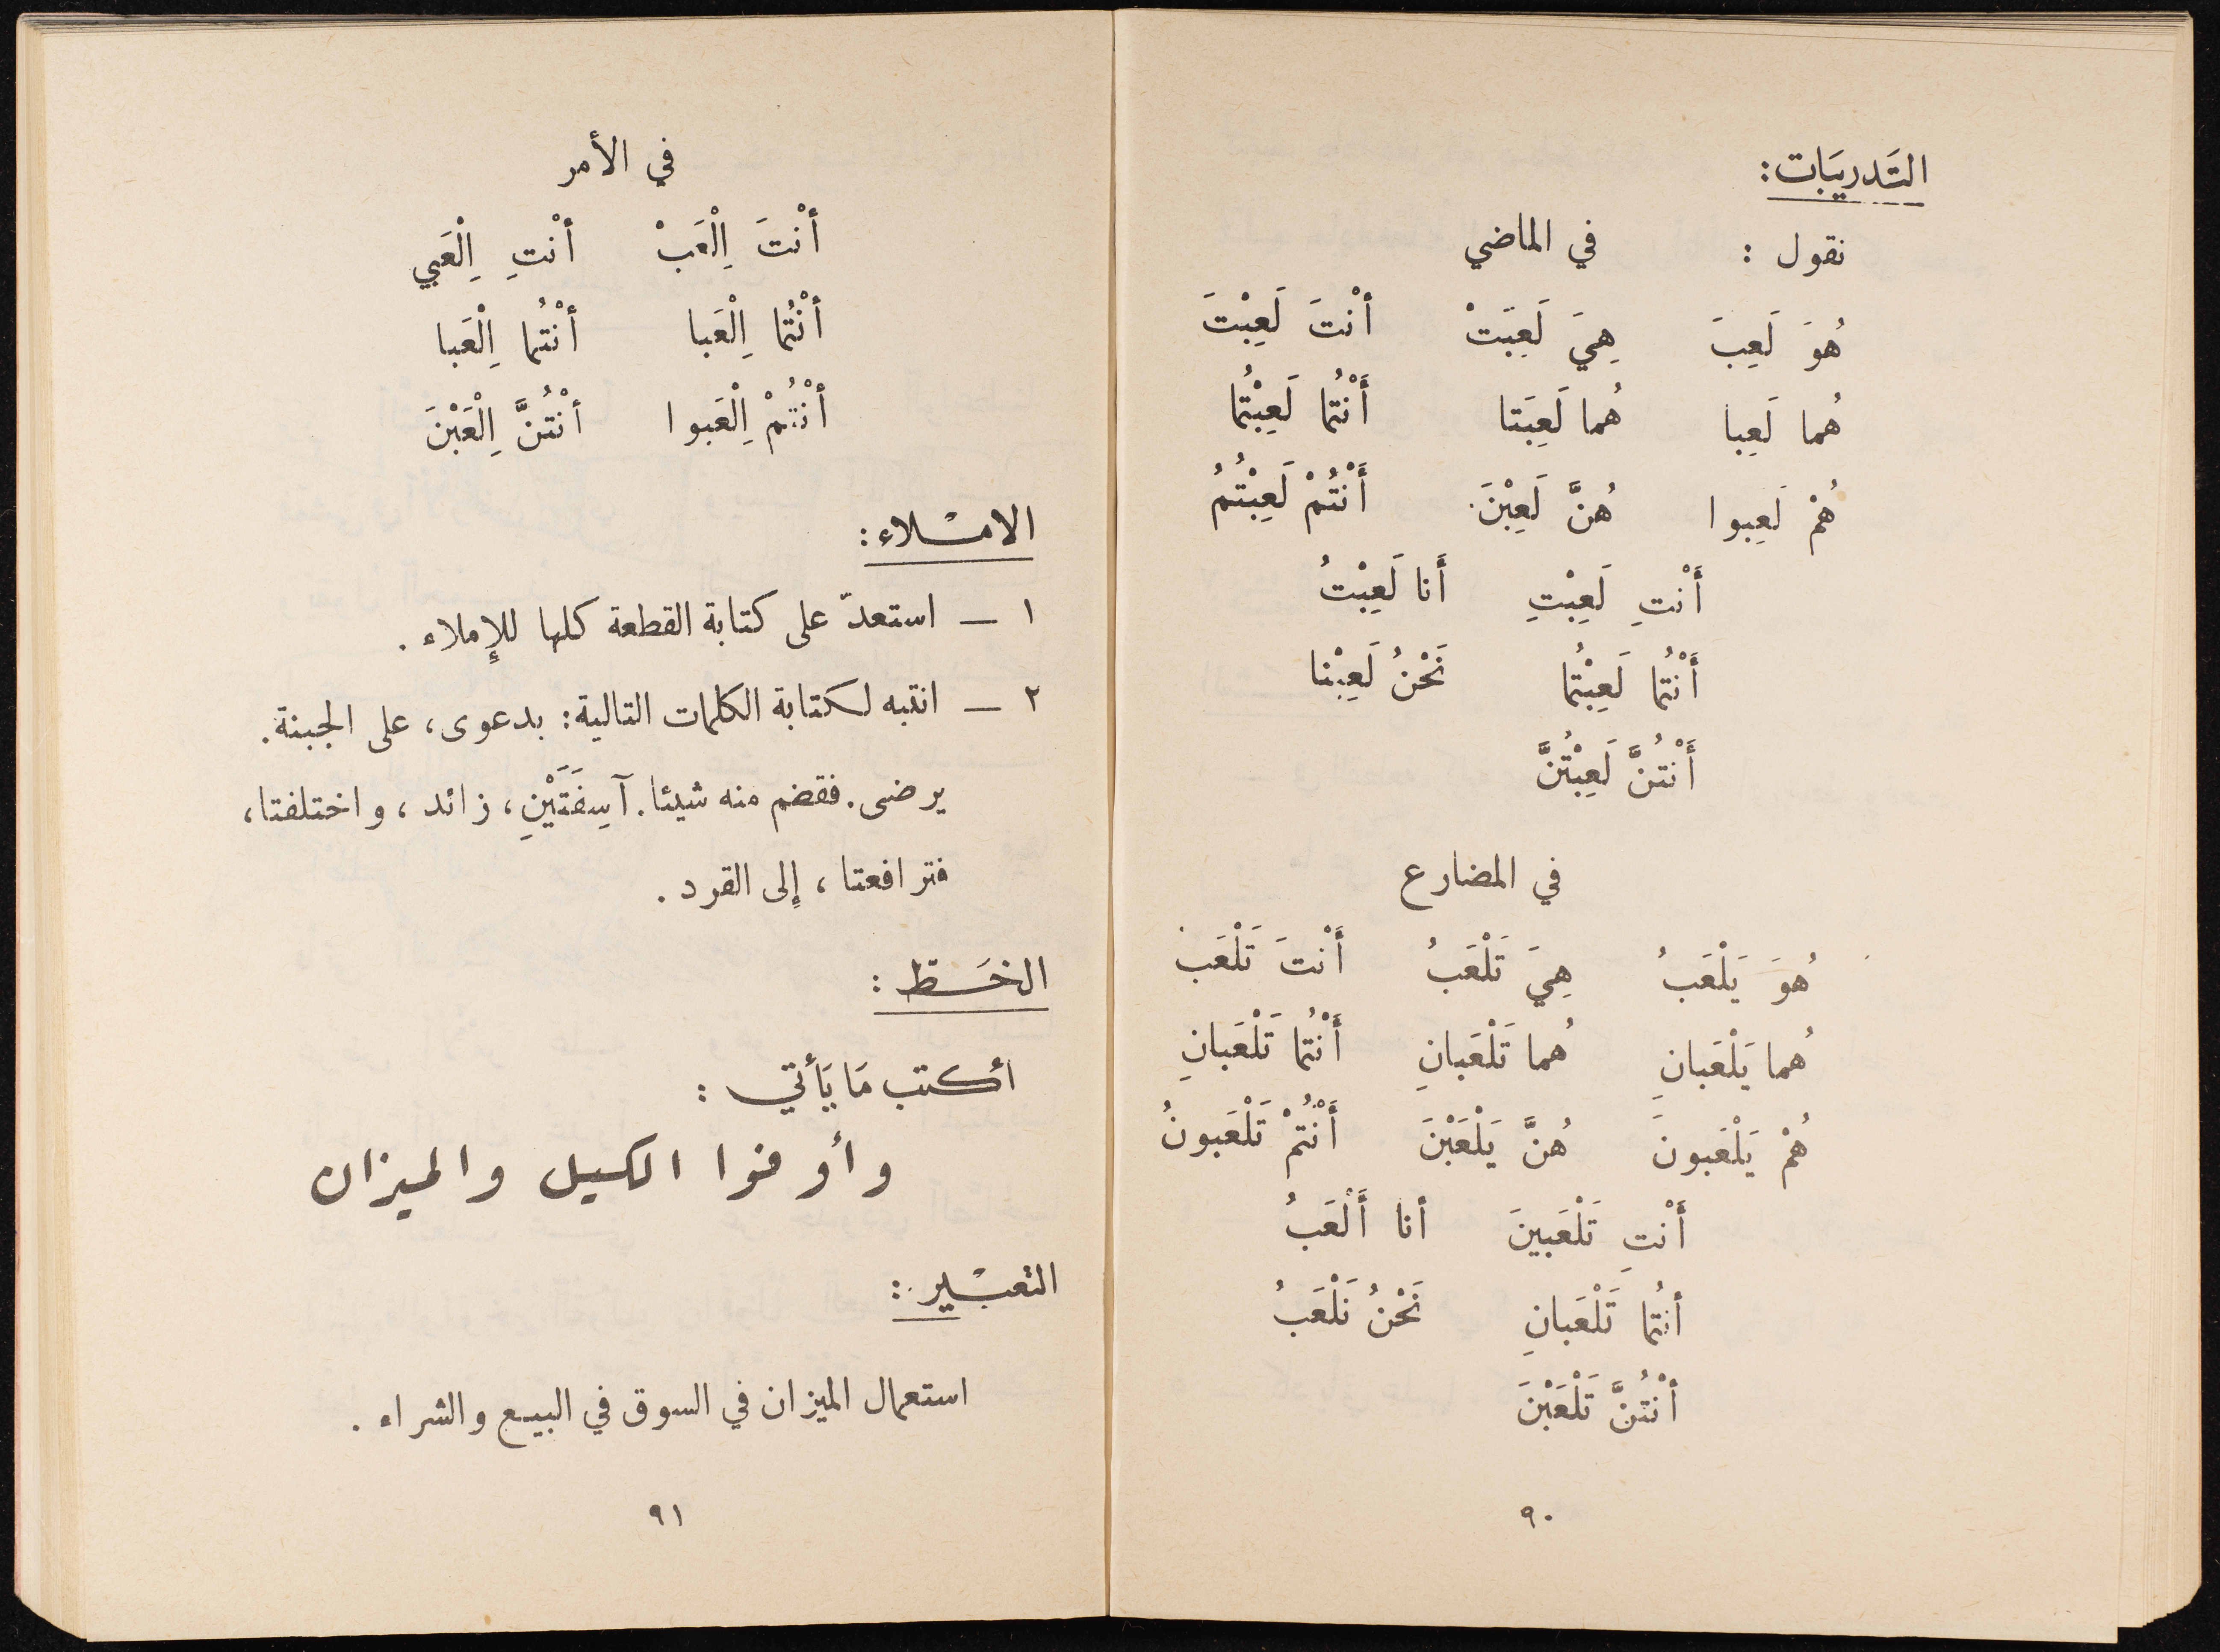 التَدريَبات:
نقول : في الماضي
هُوَ لَعِبَ هِيَ لَعِبَتْ أنْتَ لَعِبْتَ
هُما لَعِبا هُما لَعِبَتا أَنْتُما لَعِبْتُما
هُمْ لَعِبوا هُنَّ لَعِبْنَ. أَنْتُمْ لَعِبْتُمُ
أَنْتِ لَعِبْتِ أَنا لَعِبْتُ
أَنْتُما لَعِبْتُما نَحْنُ لَعِبْنا
أَنْتُنَّ لَعِبْتُنَّ
في المضارع
هُوَ يَلْعَبُ هِيَ تَلْعَبُ أَنْتَ تَلْعَبُ
هُما يَلْعَبانِ هُما تَلْعَبانِ أَنْتُما تَلْعَبانِ
هُمْ يَلْعَبونَ هُنَّ يَلْعَبْنَ أَنْتُمْ تَلْعَبونُ
أَنْتِ تَلْعَبينَ أنا أَلْعَبُ
أنتُما تَلْعَبانِ نَحْنُ نَلْعَبُ
أنْتُنَّ تَلْعَبْنَ
٩٠
في الأمر
أنْتَ اِلْعَبْ أنْتِ اِلْعَبي
أنْتُما اِلْعَبا أنْتُما اِلْعَبا
أنْتُمْ اِلْعَبوا أنْتُنَّ اِلْعَبْنَ
الامْلاء:
١ — استعدّ على كتابة القطعة كلها للإملاء .
٢ — انتبه لكتابة الكلمات التالية: بدعوى، على الجبنة.
يرضى. فقضم منه شيئا. آسِفَتَيْنِ، زائد ، واختلفتا،
فترافعتا ، إلى القرد .
الخَط :
أكتب مَا يَأتي :
وأوفوا الكيل والميزان
التعبْير :
استعمال الميزان في السوق في البيع والشراء .
٩١